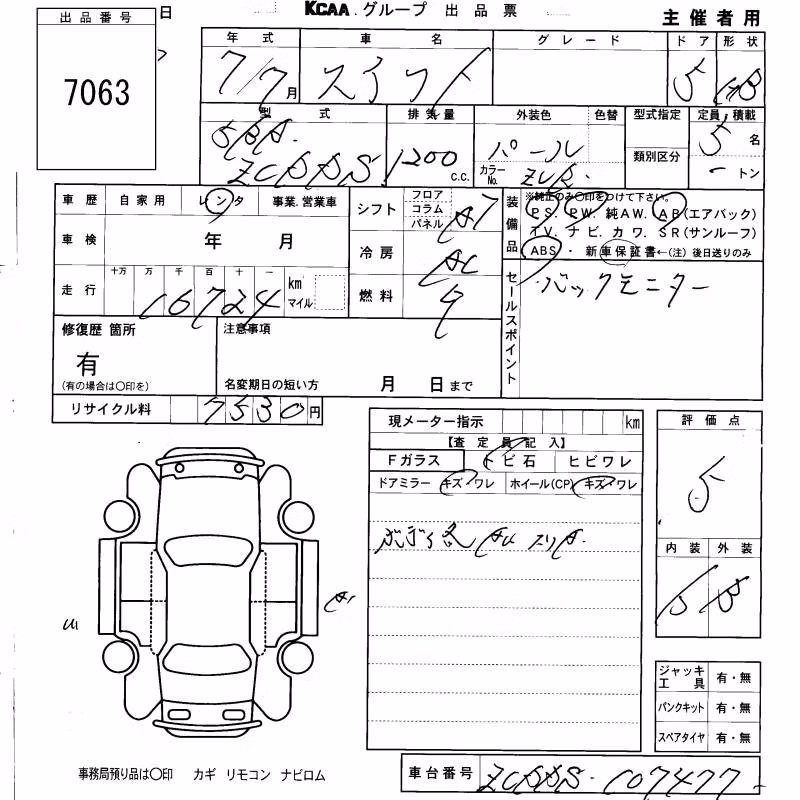 出品番号
7063
日
KCAA グループ 出品票
主催者用
年式 車名 グレード ドア 形状
7/7月 スイフト 5 HB
型式 排気量 外装色 色替 型式指定 定員・積載
1200 c.c. パール カラーNo. 類別区分 5名
トン
車歴 自家用 レンタ 事業.営業車
シフト フロア コラム パネル AT
装備品 ※純正のみ〇印をつけて下さい。
PS. PW. 純AW. AB(エアバック)
TV. ナビ. カワ. SR(サンルーフ)
ABS・新車保証書←(注) 後日送りのみ
車検 年 月
冷房 AC
走行 十万 万 千 百 十 一
16724 km マイル
燃料
セールスポイント バックモニター
修復歴 箇所
有
(有の場合は〇印を)
注意事項
名変期日の短い方 月 日まで
リサイクル料 7530円
現メーター指示 km
【査定員記入】
Fガラス トビ石 ヒビワレ
ドアミラー キズ・ワレ ホイール(CP) キズ・ワレ
評価点
5
内装 外装
B
A1
ジャッキ工具 有・無
パンクキット 有・無
スペアタイヤ 有・無
事務局預り品は〇印 カギ リモコン ナビロム
車台番号